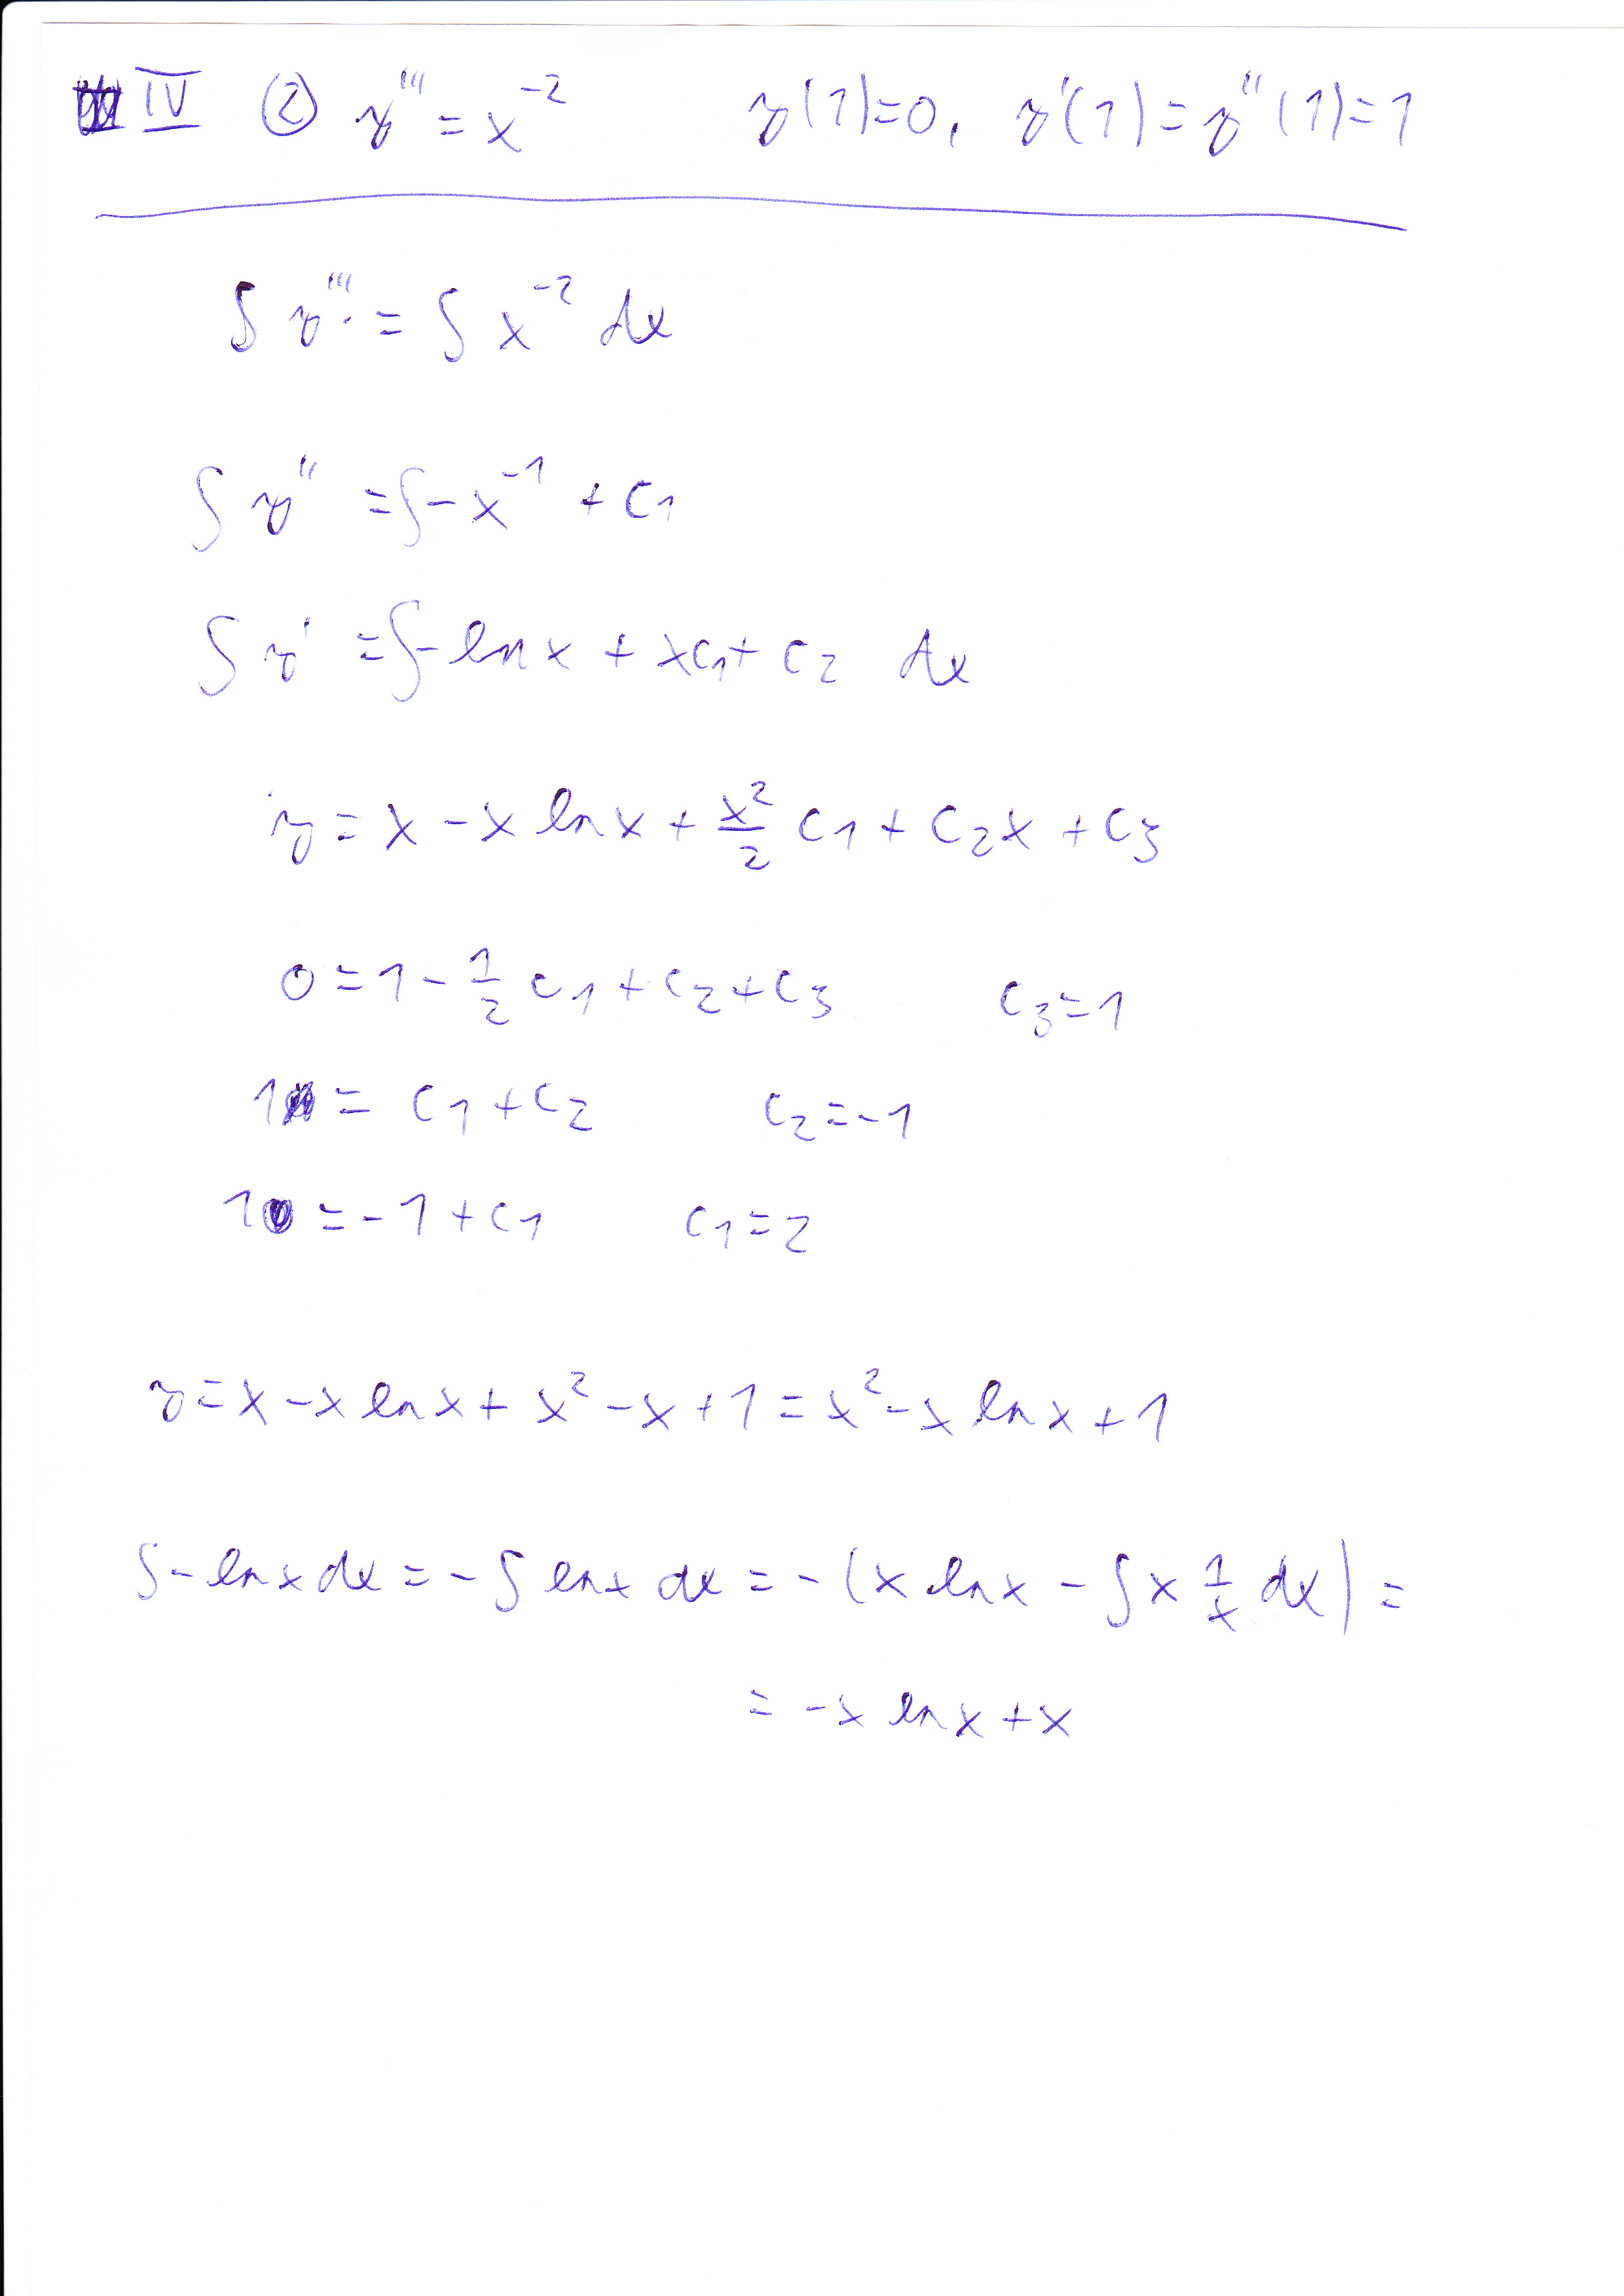 IV ② y''' = x^-2 y(1)=0, y'(1)=y''(1)=1
∫ y''' = ∫ x^-2 dx
∫ y'' = ∫ -x^-1 + c₁
∫ y' = ∫ -ln x + xc₁ + c₂ dx
y = x - x ln x + x²/2 c₁ + c₂x + c₃
0 = 1 - 1/2 c₁ + c₂ + c₃ c₃ = 1
1 = c₁ + c₂ c₂ = -1
1 = -1 + c₁ c₁ = 2
y = x - x ln x + x² - x + 1 = x² - x ln x + 1
∫ - ln x dx = - ∫ ln x dx = - (x ln x - ∫ x 1/x dx) =
= -x ln x + x